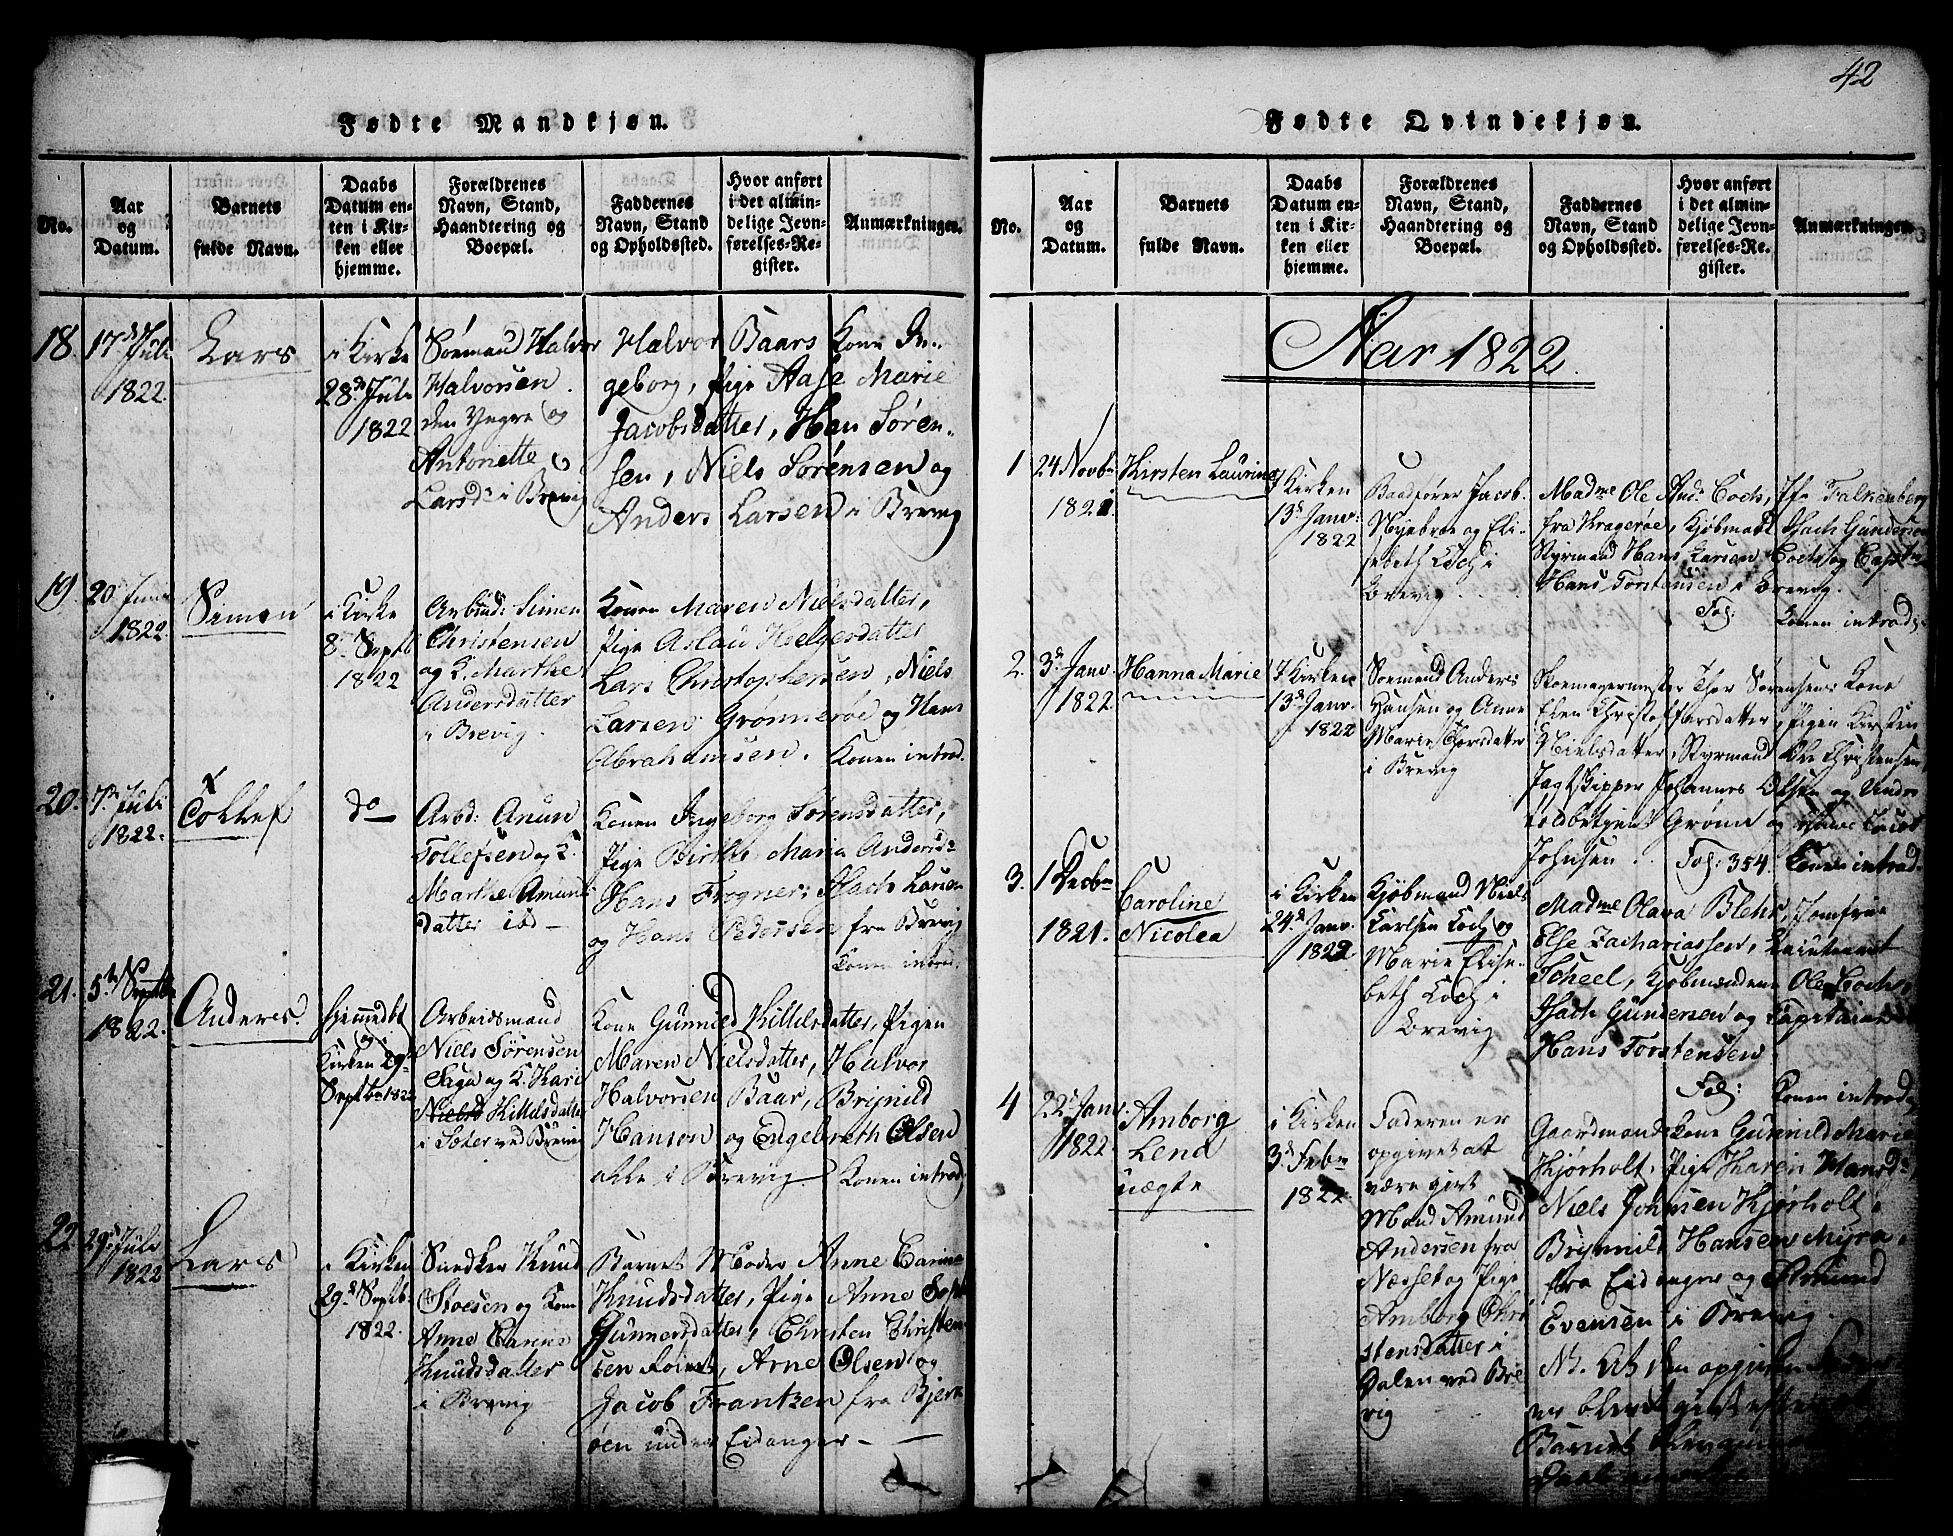 42
Fødte Mandkjøn.
No.
Aar
og
Datum.
Barnets
fulde Navn.
Daabs
Datum en-
ten i Kir-
ken eller
hjemme.
Forældrenes
Navn, Stand,
Haandtering og
Boepæl.
Faddernes
Navn, Stand
og Opholdssted.
Hvor anført
i det almin-
delige Jevn-
førelses-Re-
gister.
Anmærkninger.
18.
17de Juli
1822.
Lars
i Kirke
28de Juli
1822
Søemand Halvor
Halvorsen
den Yngre og
Antoniette
Larsdr i Brevig
Halvor Baars Kone In-
geborg, Pige Aase Marie
Jacobsdatter, Han Søren-
sen, Niels Sørensen og
Anders Larsen i Brevig
19.
20 Juni
1822.
Simon
i Kirke
8de Septb
1822
Arbmd: Simen
Christensen
og K. Marthe
Andersdatter
i Brevig.
Konen Maren Nielsdatter,
Pige Aslau Helgesdatter
Lars Christophersen, Niels
Larsen Grønnerøe og Hans
Abrahamsen. Konen introd.
20.
7de Juli
1822.
Tollef
do
Arbd: Anun
Tollefsen og K.
Marthe Amund
datter ibd
Konen Ingeborg Sørensdatter,
Pige Birthe Maria Andersdr
Hans Frogner, Isach Larsen
og Hans Pedersen fra Brevig
Konen introd.
21.
5te Septbr
1822.
Anders.
hjemmedbt
og
Kirken 29de
Septbr 1822
Arbeidsmand
Niels Sørensen
Saga og K. Kari
Kittelsdatter
i Sæter ved Brevig
Kone Gunnild Kittilsdatter, Pigen
Maren Nielsdatter, Halvor
Halvorsen Baar, Brynild
Hanson og Engebreth Olsen
alle i Brevig Konen introd.
22
29de Juli
1822
Lars
i Kirken
29de Septb.
1822.
Snedker Knud
Stoesen og Kone
Anne Carine
Knudsdatter
i Brevig
Barnets Moder Anne Carine
Knudsdatter, Pige Anne
Gunnersdatter, Christen Christen
sen, Arne Olsen og
Jacob Frantzen fra Bjerk
øen under Eidanger
Fødte Qvindekjøn.
No.
Aar
og
Datum.
Barnets
fulde Navn.
Daabs
Datum en-
ten i Kir-
ken eller
hjemme.
Forældrenes
Navn, Stand,
Haandtering og
Boepæl.
Faddernes
Navn, Stand
og Opholdssted.
Hvor anført
i det almin-
delige Jevn-
førelses-Re-
gister.
Anmærkninger.
Aar 1822.
1
24 Novbr
1821.
Kirsten Laurine
i Kirken
13de Janv:
1822
Baadfører Jacob
Nyebroe og Eli-
sebeth Koch i
Brevig
Madme Ole Ands Coch, Jfr Falkenberg
fra Kragerøe, Kjøbmd Isach Gundersen
Styrmand Hans Larsen Coch og Capt
Hans Torstensen i Brevig.
Fol: Konen introd:
2.
3de Janv.
1822
Hanna Marie
i Kirken
13de Janv.
1822
Søemand Anders
Hansen og Anne
Marie Thorsdatter
i Brevig
Skoemagermester Thor Sørensens Kone
Elen Christofersdatter, Pigen Kirsten
Nielsdatter, Styrmand Ole Christensen,
Jagtskipper Johannes Olsen og Under
toldbetjent Grøme og
Johnsen. Fol: 354. Konen introd.
3.
1 Decbr
1821.
Caroline
Nicolea
i Kirken
24de Janv.
1822
Kjøbmand Niels
Carlsen Koch og
Marie Elise-
beth Koch i
Brevig
Madme Olava Blehr, Jomfrue
Else Zachariassen, Lieutenant
Scheel, Kjøbmændene Ole Coch,
Isach Gundersen og Capitain
Hans Torstensen
Fol: Konen introd
4
22de Janv.
1822
Amborg
Lena
uægte
i Kirken
3de Febr
1822
Faderen er
opgivet at
være givt
Mand Amund
Andersen fra
Næsset og Pige
Amborg Chri
stensdatter i
Dalen ved Bre
vig
Gaardmands Kone Gunnild Marie
Kjørholt, Pige Karen Hansdr
Niels Johnsen Kjørholt,
Brynnild Hansen Myra
fra Eidanger og Amund
Evensen i Brevig.
Nb. At den opgivne Fader
er blevet givt efter at
Barnets